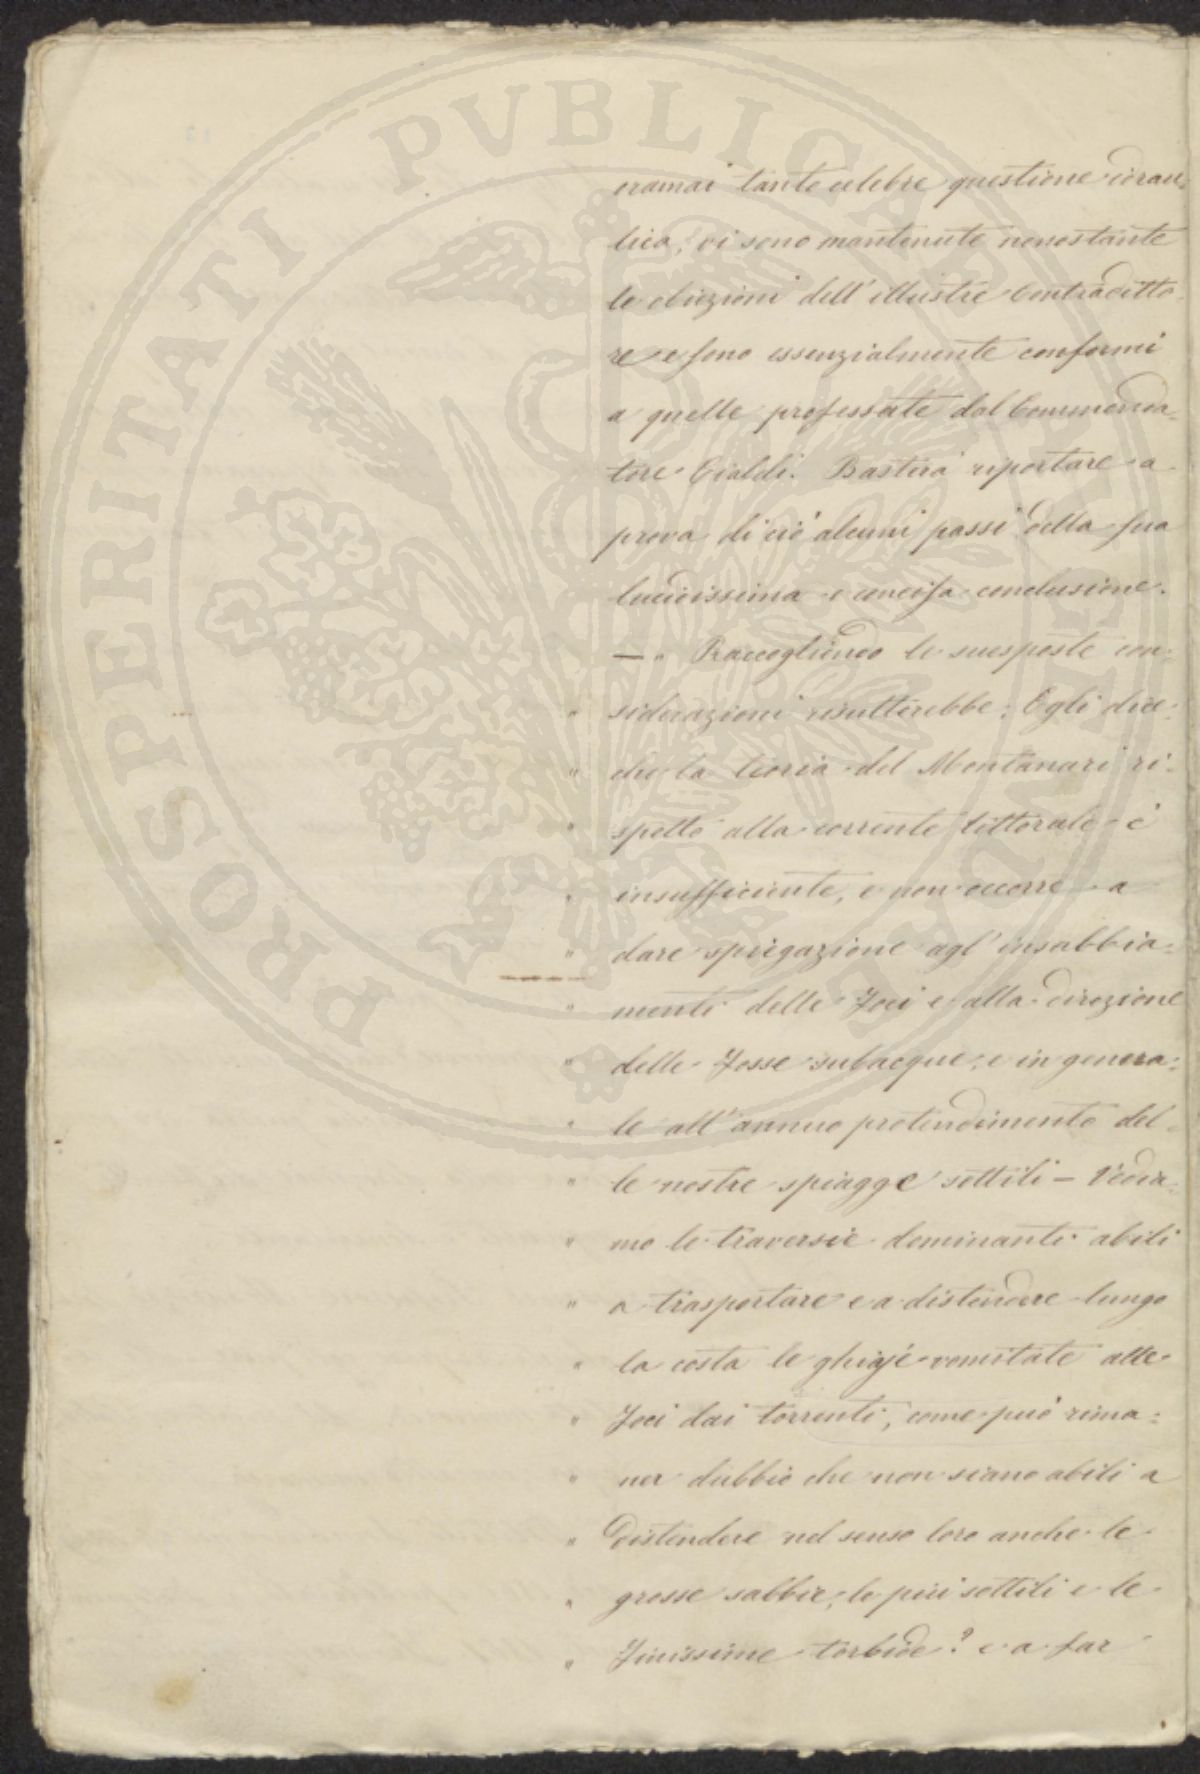 PROSPERITATI PUBLICAE AUGENDAE
oramai tanto celebre questione idrau:
lica, vi sono mantenute nonostante
le obiezioni dell'illustre Contraditto,
re e sono essenzialmente conformi
a quelle professate dal Commenda,
tore Cialdi. Basterà riportare a
prova di ciò alcuni passi della sua
lucidissima e concisa conclusione.
— " Raccogliendo le suesposte con:
" siderazioni risulterebbe; Egli dice:
" che la teoria del Montanari ri:
" spetto alla corrente littorale è
" insufficiente, e non occorre a
" dare spiegazione agl'insabbia:
" menti delle Foci e alla direzione
" delle Fosse subacque; e in genera:
" le all'annuo protendimento del=
" le nostre spiagge sottili – Vedia,
" mo le traversie dominanti abili
" a trasportare e a distendere lungo
" la costa le ghiaje vomitate alle
" Foci dai torrenti; come può rima:
" ner dubbio che non siano abili a
" distendere nel senso loro anche le
" grosse sabbie, le più sottili e le
" Finissime torbide? e a far